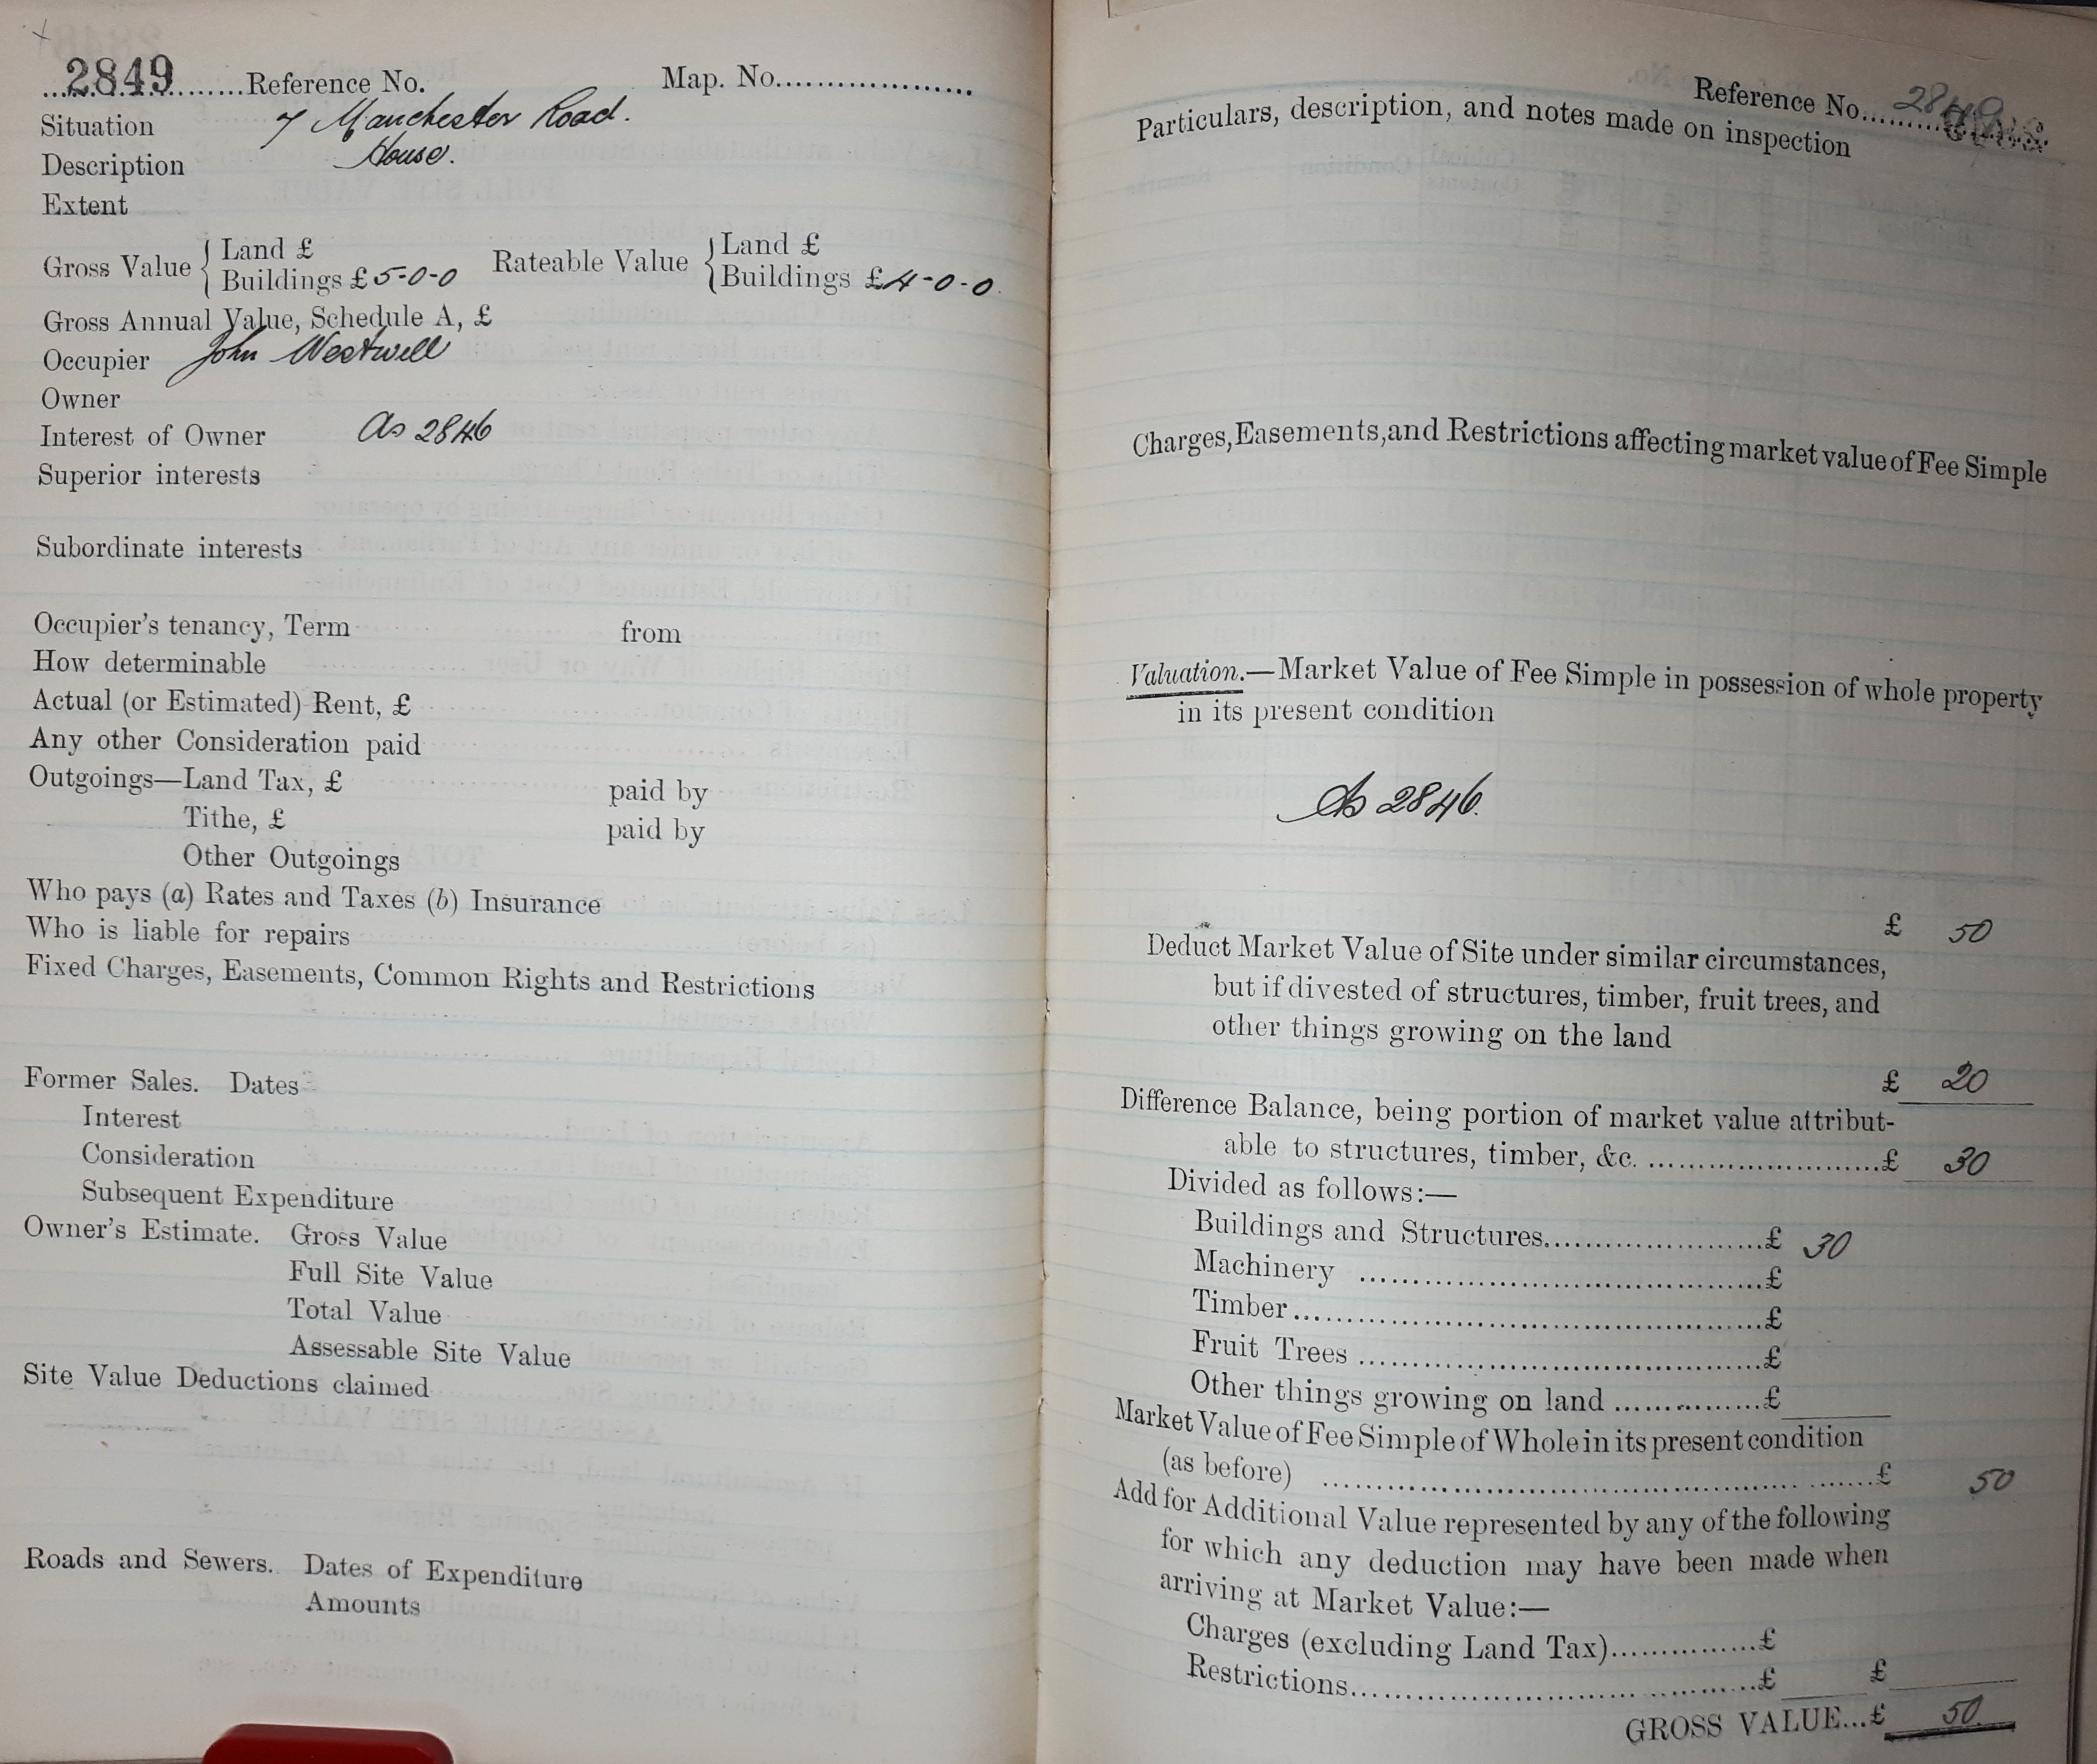 2849 Reference No. Map. No.
Situation 7 Manchester Road.
Description House.
Extent
Gross Value { Land £ Rateable Value { Land £
Buildings £5-0-0 Buildings £4-0-0
Gross Annual Value, Schedule A, £
Occupier John Westwell
Owner
Interest of Owner As 2846
Superior interests
Subordinate interests
Occupier's tenancy, Term from
How determinable
Actual (or Estimated) Rent, £
Any other Consideration paid
Outgoings—Land Tax, £ paid by
Tithe, £ paid by
Other Outgoings
Who pays (a) Rates and Taxes (b) Insurance
Who is liable for repairs
Fixed Charges, Easements, Common Rights and Restrictions
Former Sales. Dates
Interest
Consideration
Subsequent Expenditure
Owner's Estimate. Gross Value
Full Site Value
Total Value
Assessable Site Value
Site Value Deductions claimed
Roads and Sewers. Dates of Expenditure
Amounts
Reference No. 2849
Particulars, description, and notes made on inspection
Charges, Easements, and Restrictions affecting market value of Fee Simple
Valuation.—Market Value of Fee Simple in possession of whole property
in its present condition
As 2846.
£ 50
Deduct Market Value of Site under similar circumstances,
but if divested of structures, timber, fruit trees, and
other things growing on the land
£ 20
Difference Balance, being portion of market value attribut-
able to structures, timber, &c. £ 30
Divided as follows:—
Buildings and Structures £ 30
Machinery £
Timber £
Fruit Trees £
Other things growing on land £
Market Value of Fee Simple of Whole in its present condition
(as before) £ 50
Add for Additional Value represented by any of the following
for which any deduction may have been made when
arriving at Market Value:—
Charges (excluding Land Tax) £
Restrictions £ £
GROSS VALUE...£ 50